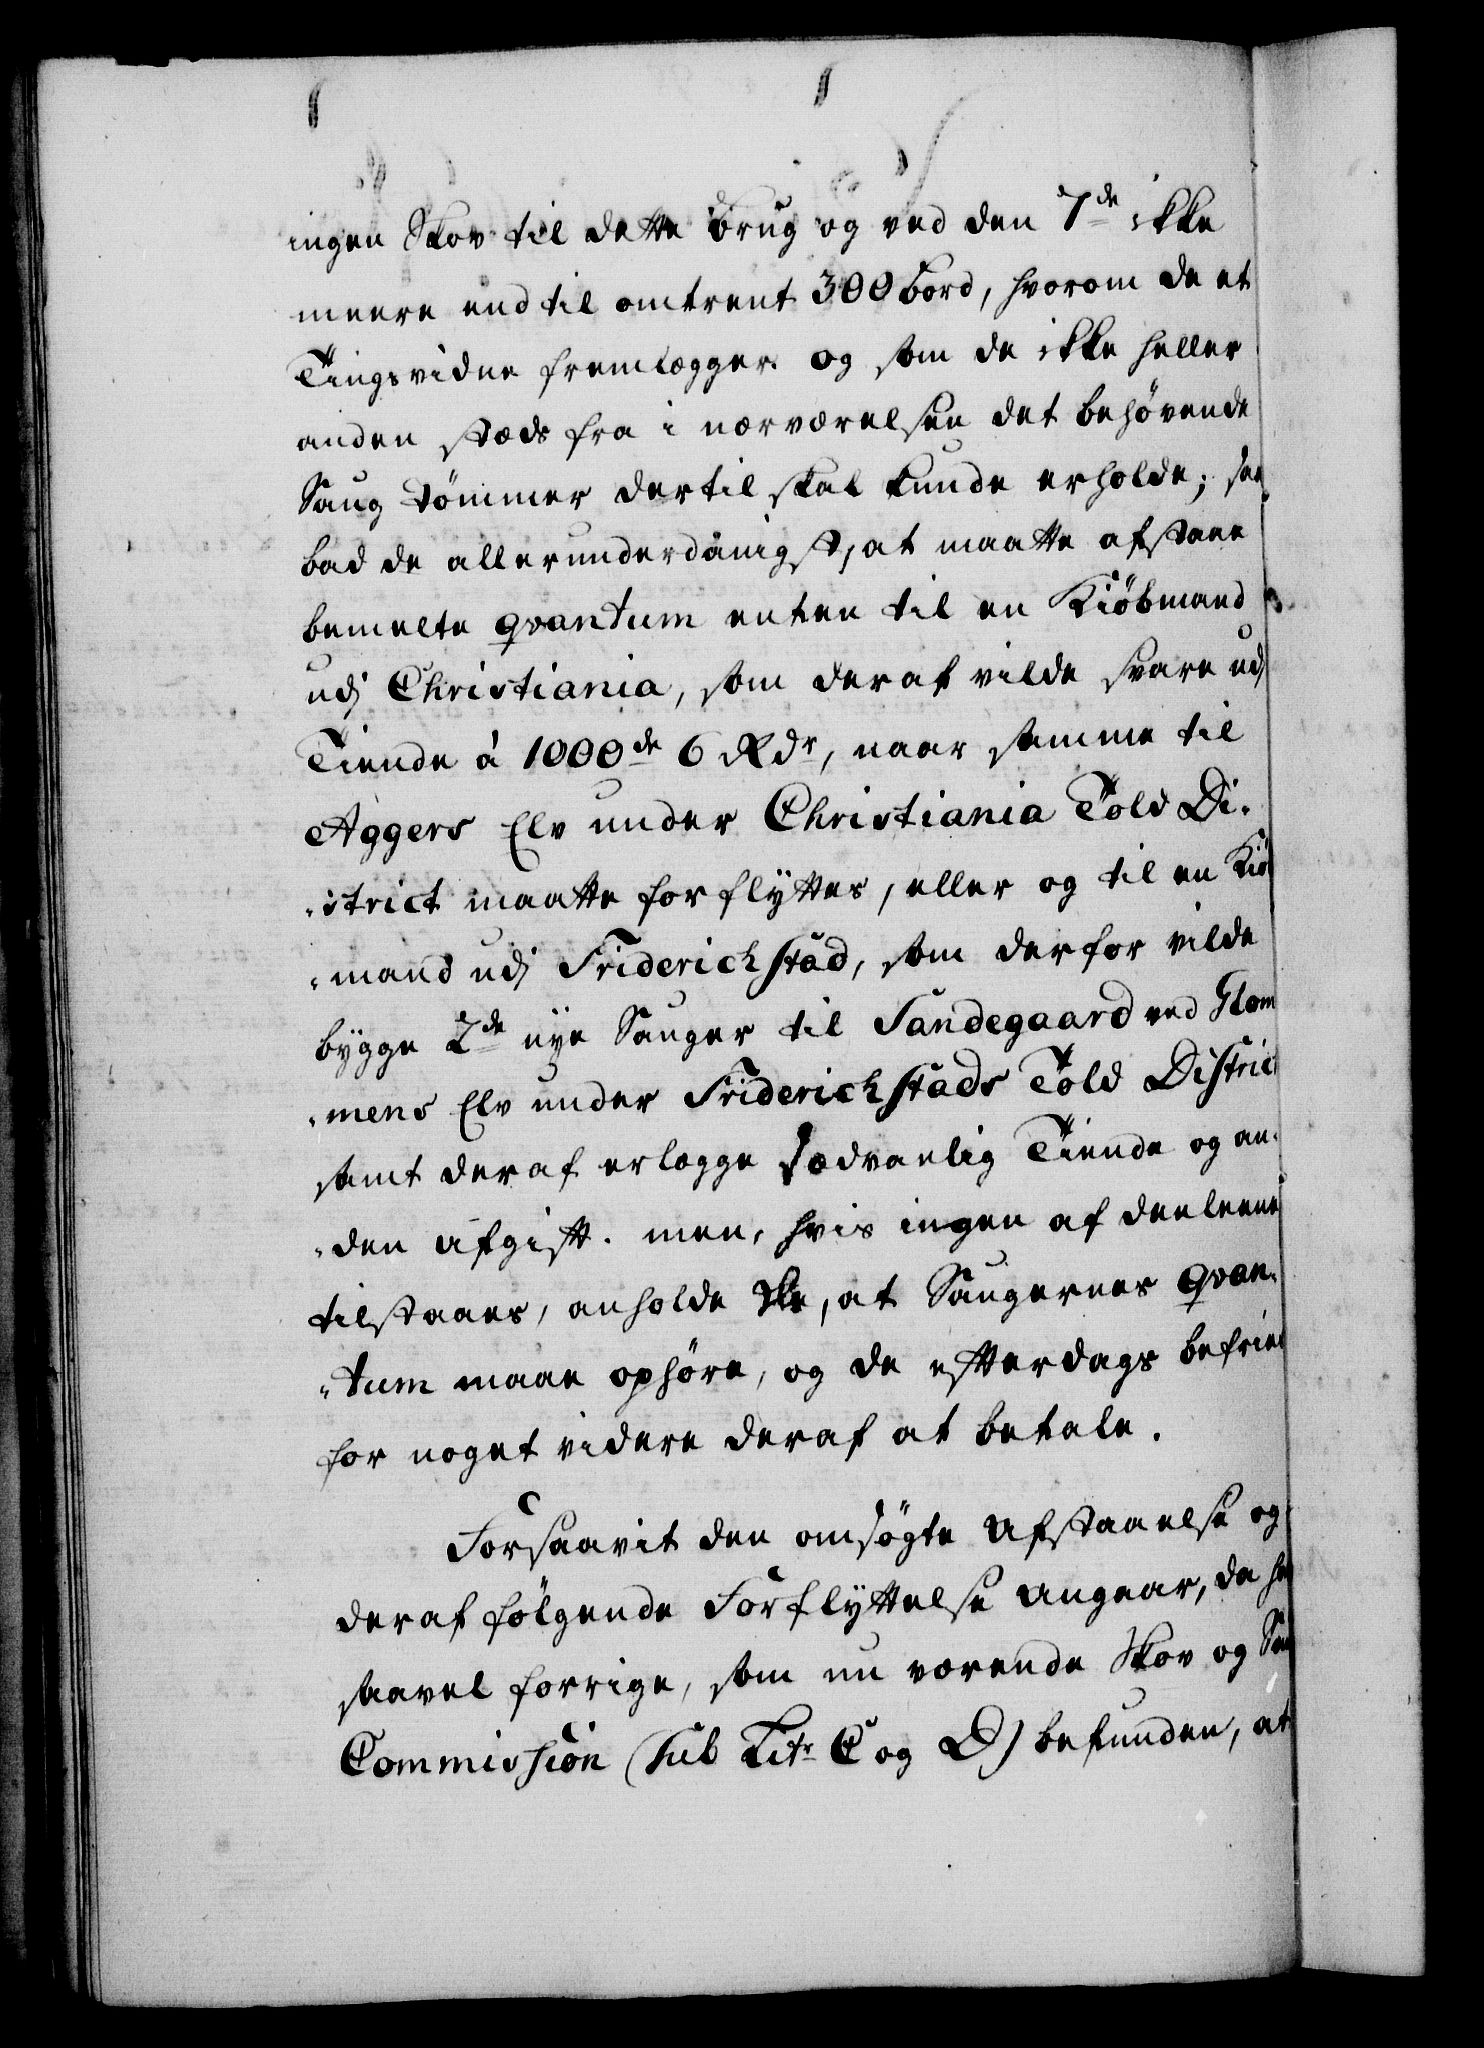 ingen Skov til dette Brug og ved den 7de ikke
meere end til omtrent 300 Bord, hvorom de et
Tingsvidne fremlægger. og som de ikke heller
anden stæds fra i nærværelsen det behøvende
Saug Tömmer dertil skal kunde erholde; saa
bad de allerunderdanigst, at maatte afstaae
bemelte qvantum enten til en Kiöbmand
udj Christiania, som deraf vilde svare udj
Tiende á 1000de 6 Rdr, naar samme til
Aggers Elv under Christiania Told Di-
-strict maatte forflyttes, eller og til en Kiö
-mand udj Friderichstad, som derfor vilde
bygge 2de nye Sauger til Sandegaard ved Glom
-mens Elv under Friderichstads Told District
samt deraf erlægge sædvanlig Tiende og an-
-den Afgift. men, hvis ingen af deelene
tilstaaes, anholde de, at Saugernes qvan-
-tum maae ophöre, og de efterdags befriet
for noget videre deraf at betale.
Forsaavit den omsøgte Afstaaelse og
deraf følgende Forflyttelse angaar, da ha
saavel forrige, som nu værende Skov og Sau
Commission (sub Litr C og D) befunden, at